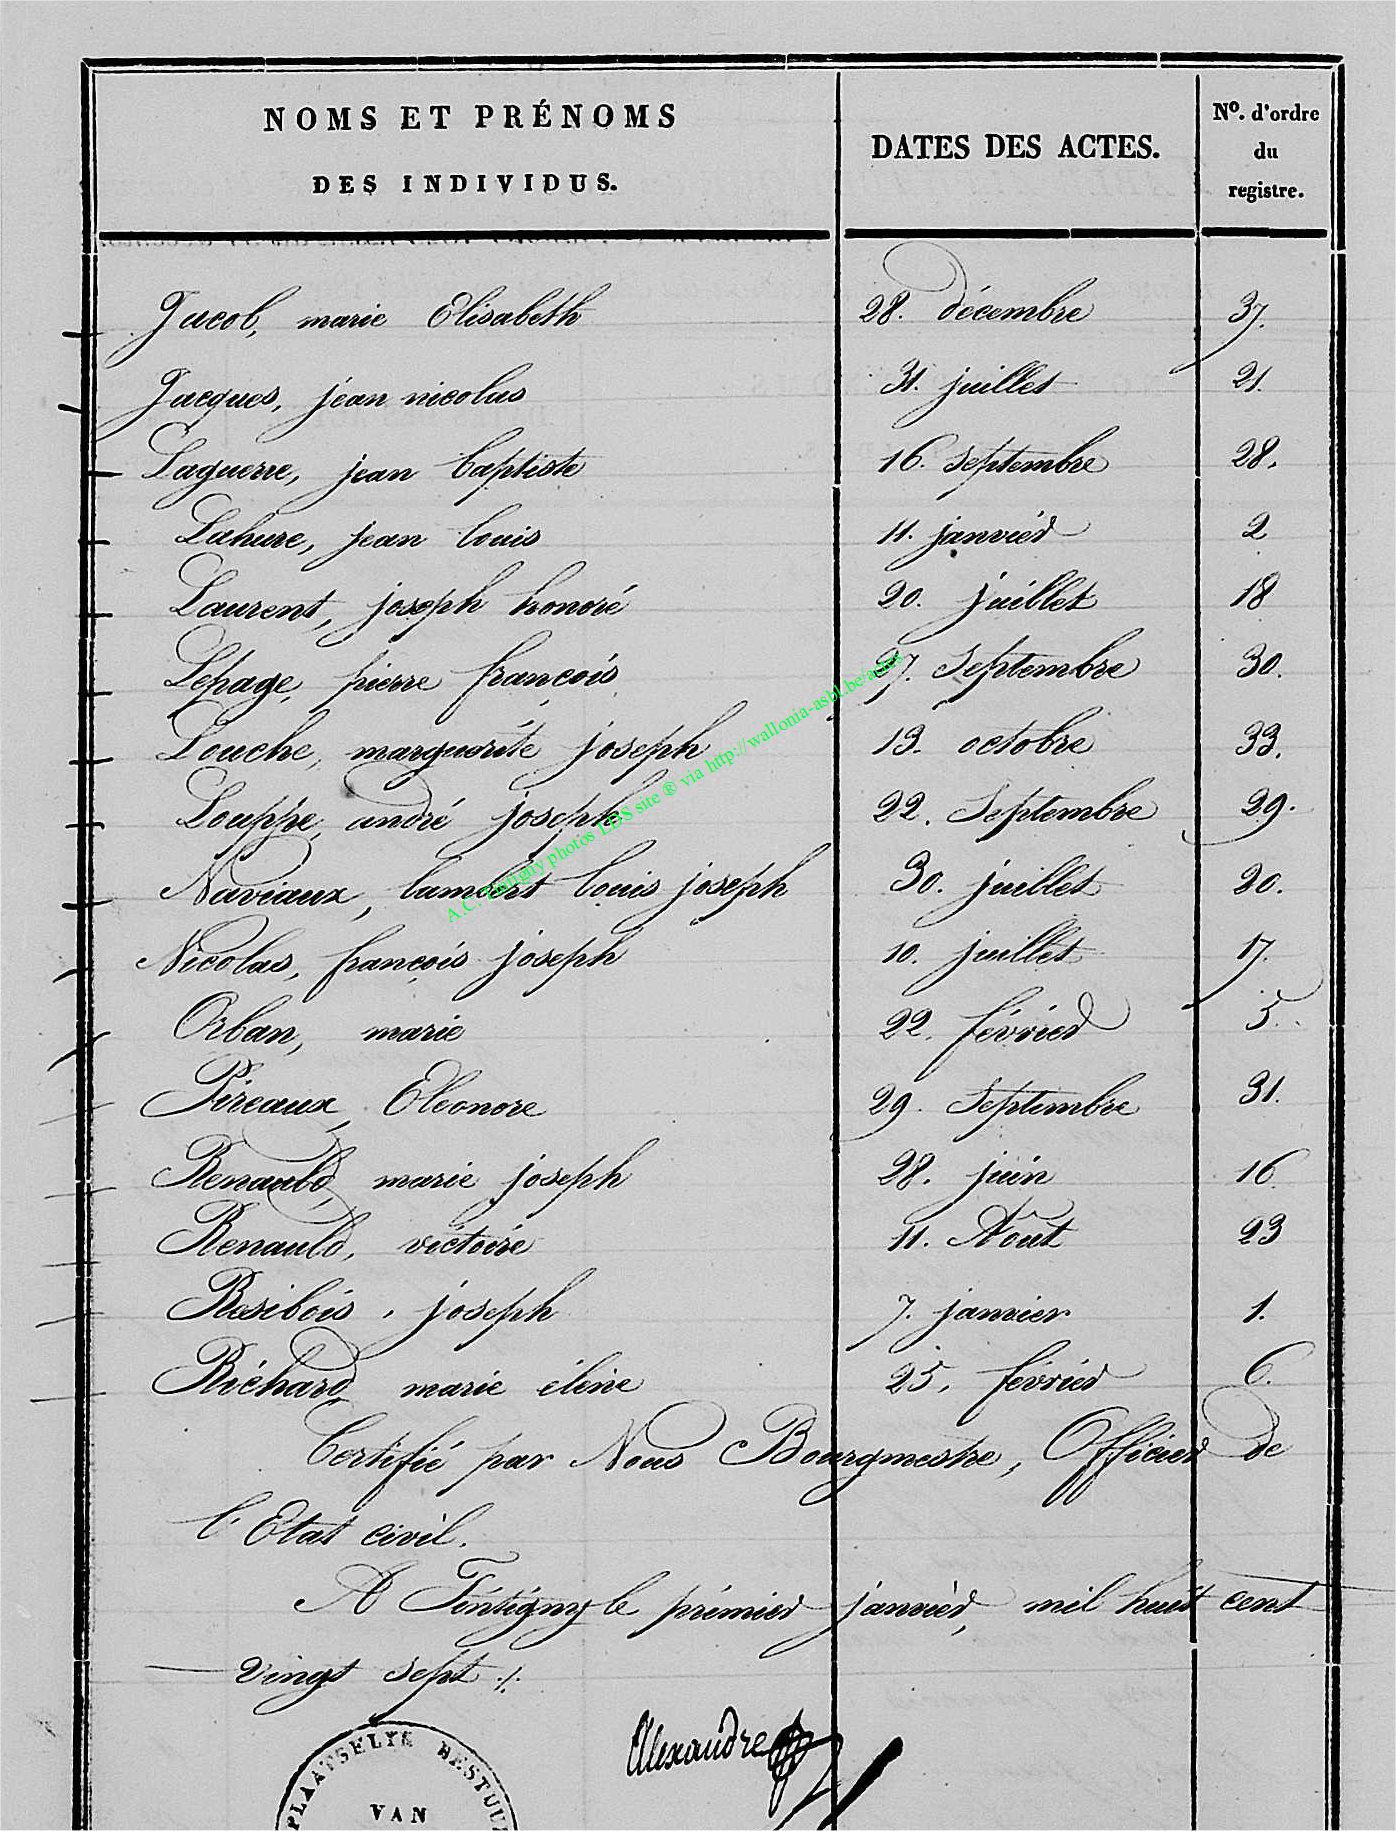 NOMS ET PRÉNOMS
DES INDIVIDUS.
DATES DES ACTES.
Nº. d'ordre
du
registre.
Jacob, marie Elisabeth 28. décembre 37.
Jacques, jean nicolas 31. juillet 21.
Laguerre, jean baptiste 16. septembre 28.
Lahure, jean louis 11. janvier 2
Laurent, joseph honoré 20. juillet 18
Lepage, pierre françois 27. Septembre 30.
Louche, marguerite joseph 13. octobre 33.
Louppe, andré joseph 22. Septembre 29.
Naviaux, lambert louis joseph 30. juillet 20.
Nicolas, françois joseph 10. juillet 17.
Orban, marie 22. février 5.
Pireaux, Eléonore 29. Septembre 31.
Renauld, marie joseph 28. juin 16
Renauld, victoire 11. Août 23
Rosibois, joseph 7. janvier 1.
Richard, marie éléne 25. février 6.
Certifié par Nous Bourgmestre, Officier de
l'Etat civil.
A Tintigny le prémier janvier, mil huit cent
vingt sept ./.
Alexandre
PLAATSELYK BESTUUR
VAN
A.C. Tintigny photos LDS site ® via http://wallonia-asbl.be/actes